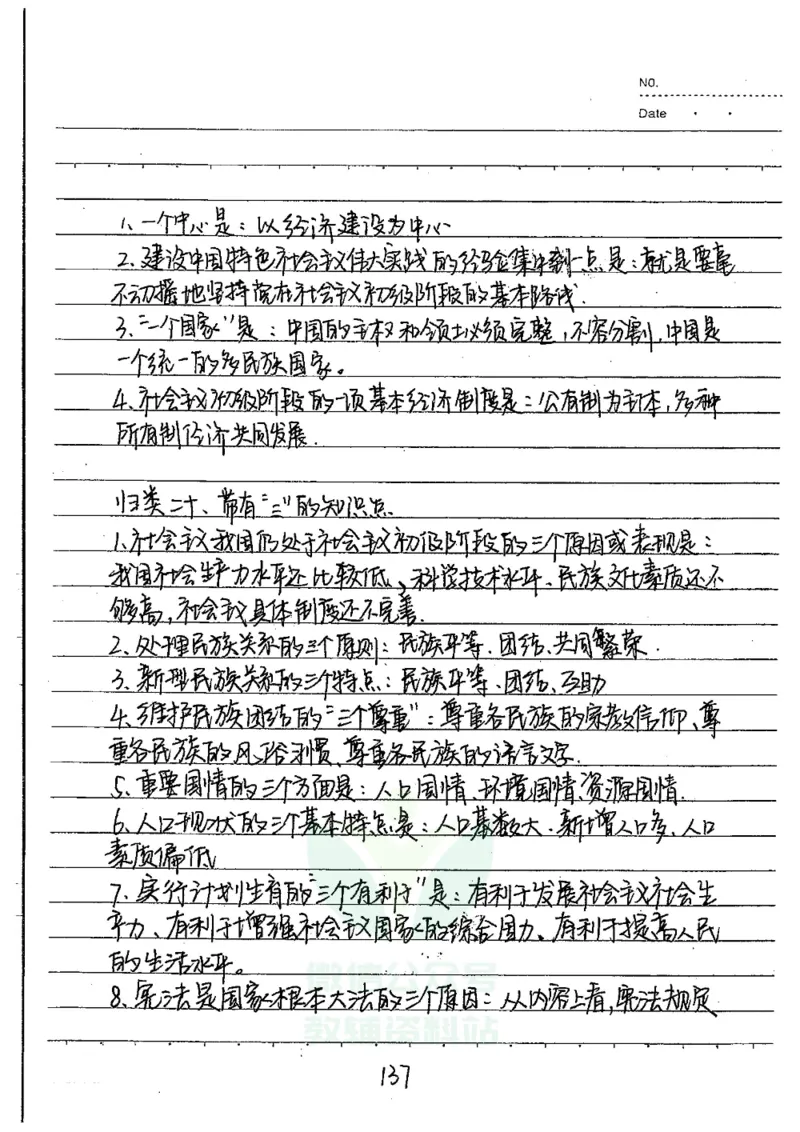 NO.
Date
1、一个中心是：以经济建设为中心
2、建设中国特色社会主义伟大实践的经验集中到一点是：就是要毫
不动摇地坚持党在社会主义初级阶段的基本路线.
3、“一个国家”是：中国的主权和领土必须完整，不容分割，中国是
一个统一的多民族国家。
4、社会主义初级阶段的一项基本经济制度是：公有制为主体，多种
所有制经济共同发展.
归类二十、带有“三”的知识点.
1、社会主义我国仍处于社会主义初级阶段的三个原因或表现是：
我国社会生产力水平还比较低、科学技术水平、民族文化素质还不
够高，社会主义具体制度还不完善.
2、处理民族关系的三个原则：民族平等、团结、共同繁荣.
3、新型民族关系的三个特点：民族平等、团结、互助
4、维护民族团结的“三个尊重”：尊重各民族的宗教信仰、尊
重各民族的风俗习惯、尊重各民族的语言文字.
5、重要国情的三个方面是：人口国情、环境国情、资源国情.
6、人口现状的三个基本特点是：人口基数大、新增人口多、人口
素质偏低
7、实行计划生育的“三个有利于”是：有利于发展社会主义社会生
产力、有利于增强社会主义国家的综合国力、有利于提高人民
的生活水平。
8、宪法是国家根本大法的三个原因：从内容上看，宪法规定
微信公众号
教辅资料站
137